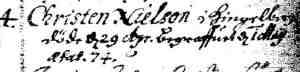 4. Christen Nielson i Hingelberg
døde d 29 Apr. begraffuit d
Ætat. 74.